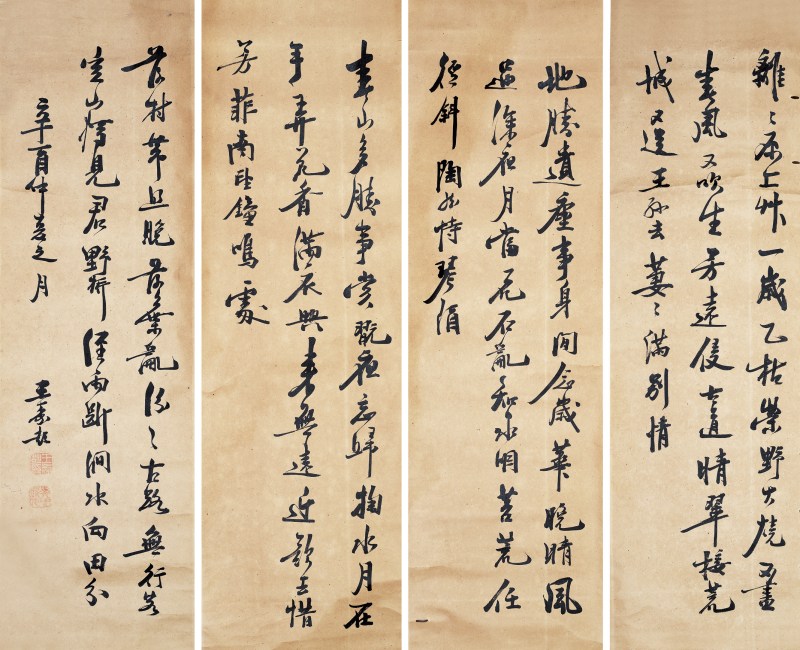 離〻原上艸一歲乙枯榮野火燒不盡
春風又吹生芳遠侵古道晴翠接荒
城又送王孫去萋〻滿別情
地勝遺塵事身閒念歲華晚晴風
過深夜月當花石亂知水苔荒任
徑斜陶然恃琴酒
春山多勝事賞翫夜忘歸掬水月在
手弄花香滿衣興來無遠近欲去惜
芳菲南望鐘鳴處
村葉亂〻古路無行客
空山獨見君野橋經雨斷澗水向田分
辛酉仲春之月